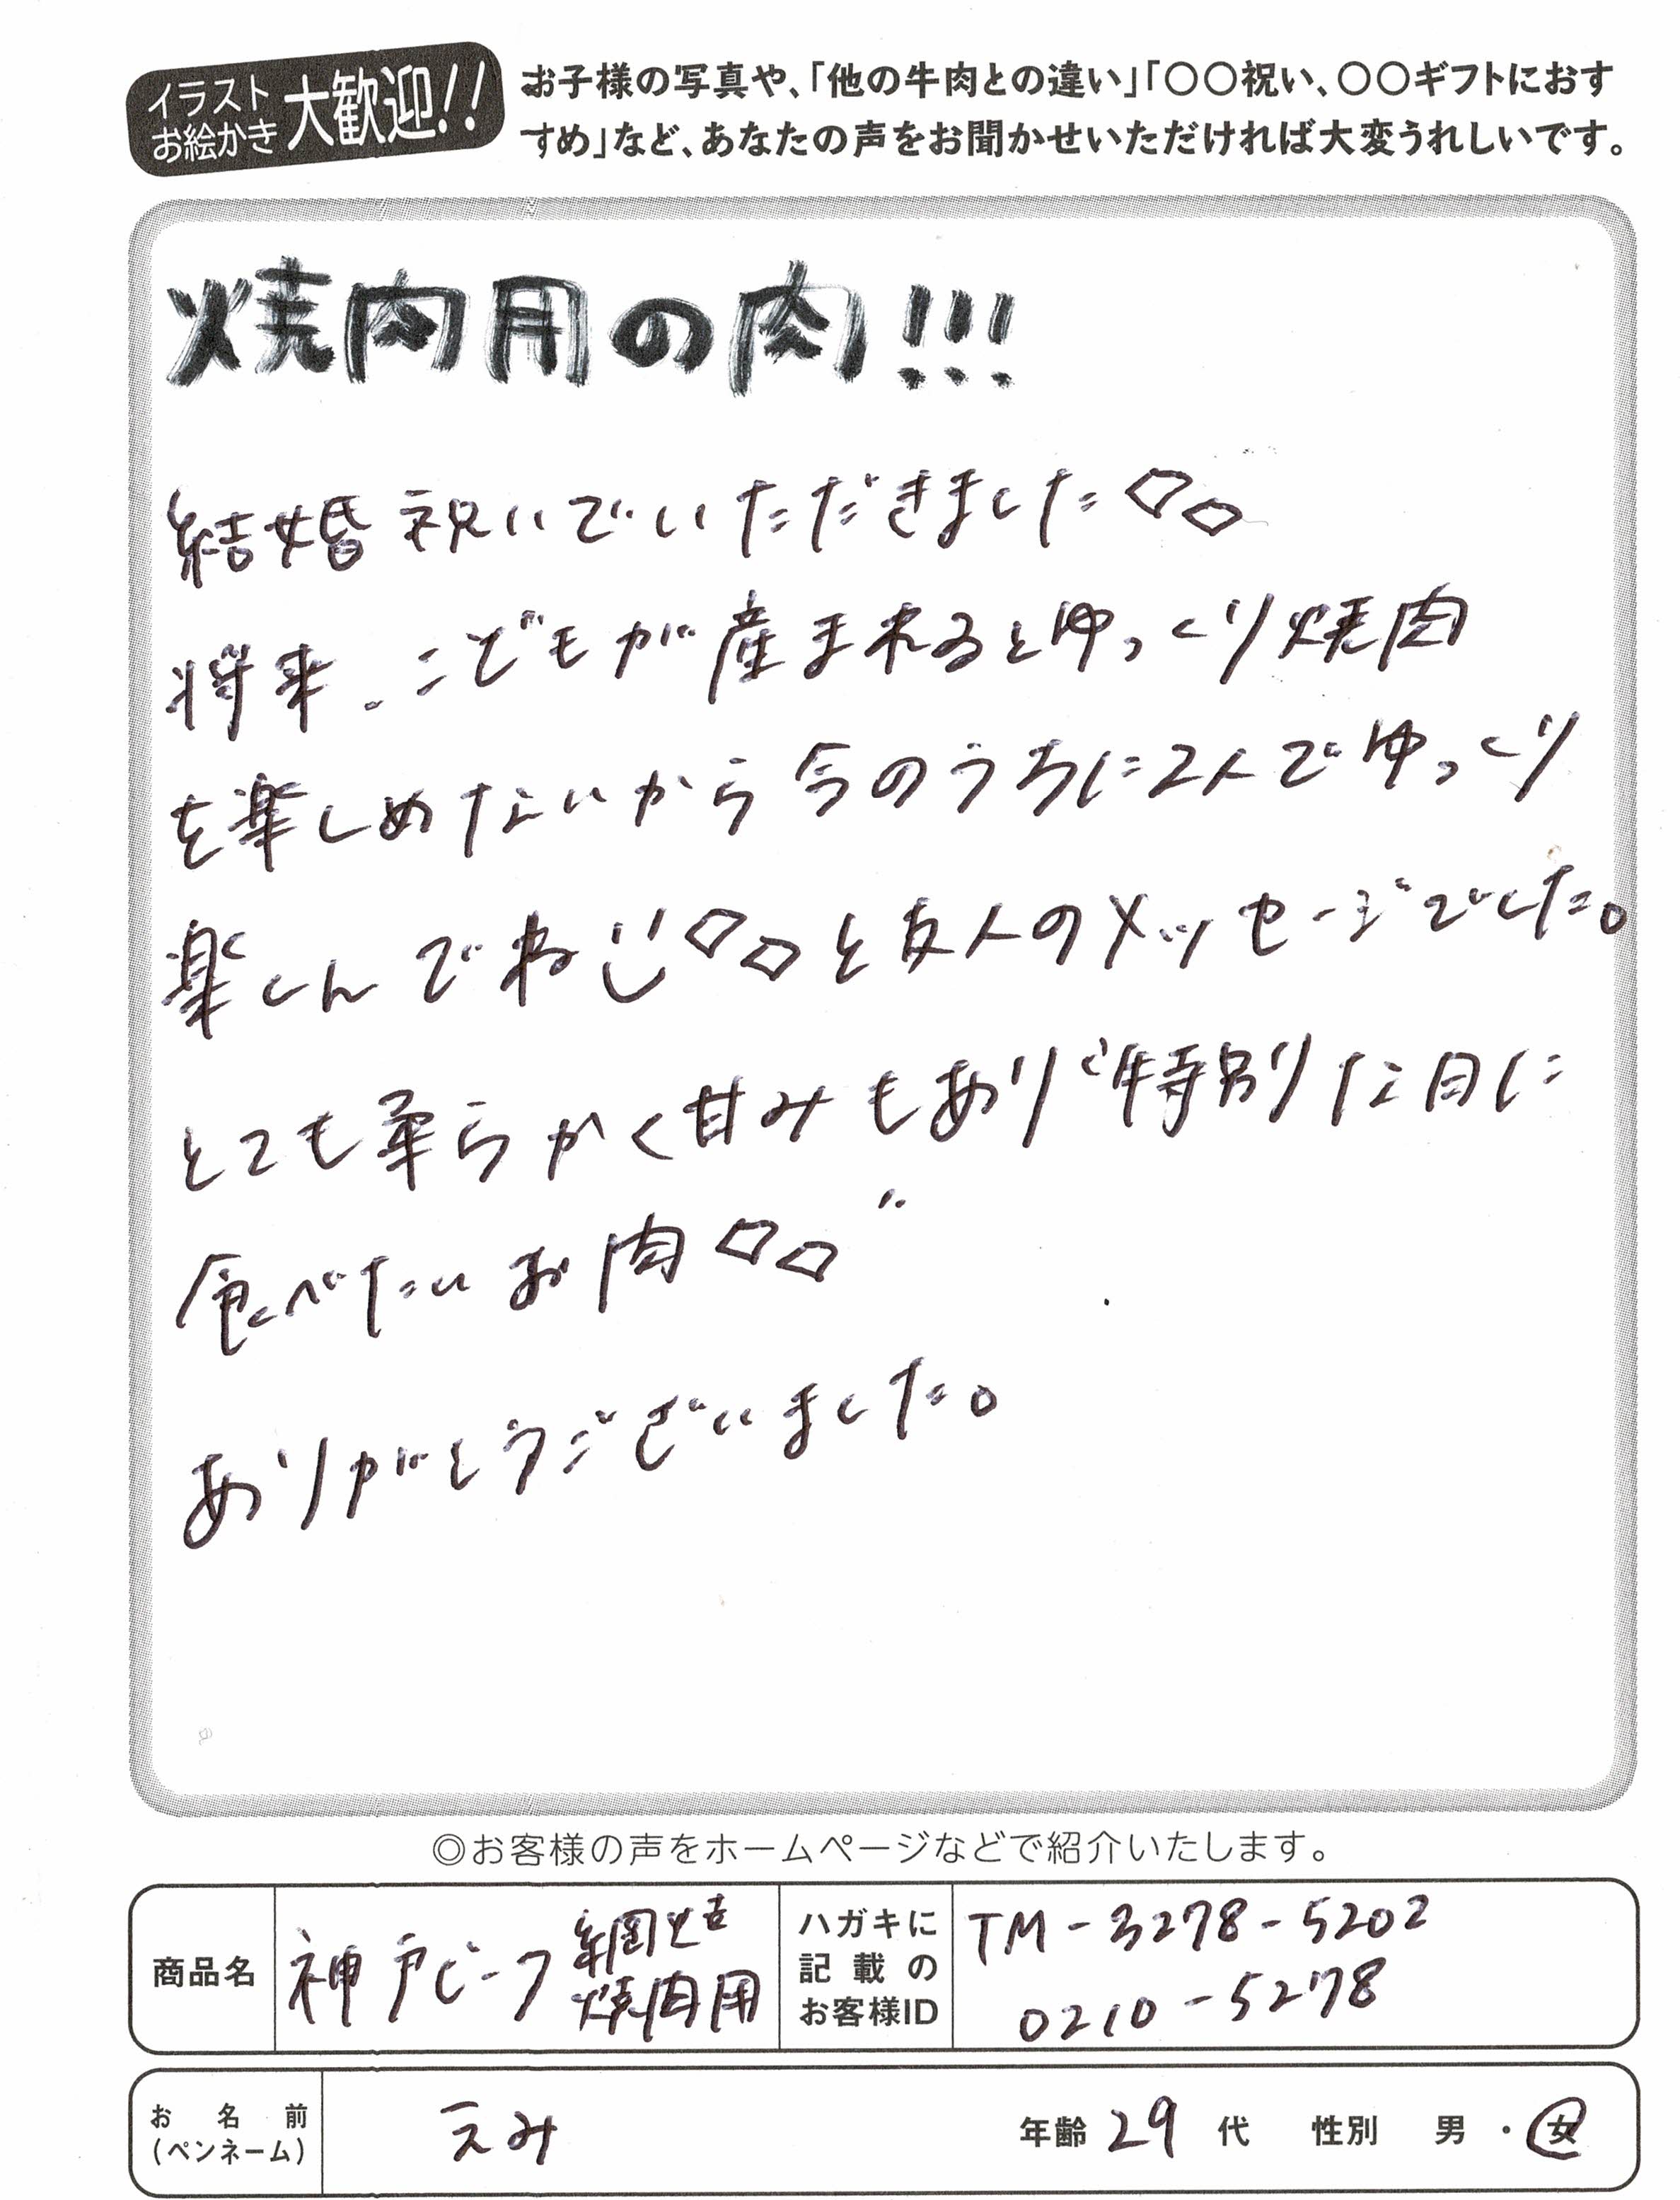 イラスト
お絵かき
大歓迎!!
お子様の写真や、「他の牛肉との違い」「〇〇祝い、〇〇ギフトにおす
すめ」など、あなたの声をお聞かせいただければ大変うれしいです。
焼肉用の肉!!!
結婚祝いでいただきました◇◇
将来、こどもが産まれるとゆっくり焼肉
を楽しめないから今のうちに2人でゆっくり
楽しんでね◇◇と友人のメッセージでした。
とても柔らかく甘みもあり“特別な日に
食べたいお肉◇◇”
ありがとうございました。
◎お客様の声をホームページなどで紹介いたします。
商品名
神戸ビーフ 網焼
焼肉用
ハガキに
記載の
お客様ID
TM-3278-5202
0210-5278
お名前
(ペンネーム)
えみ
年齢 29 代 性別 男・女